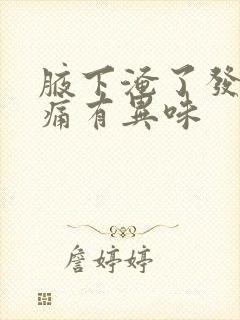 腋下淹了發
痛有異味
詹婷婷